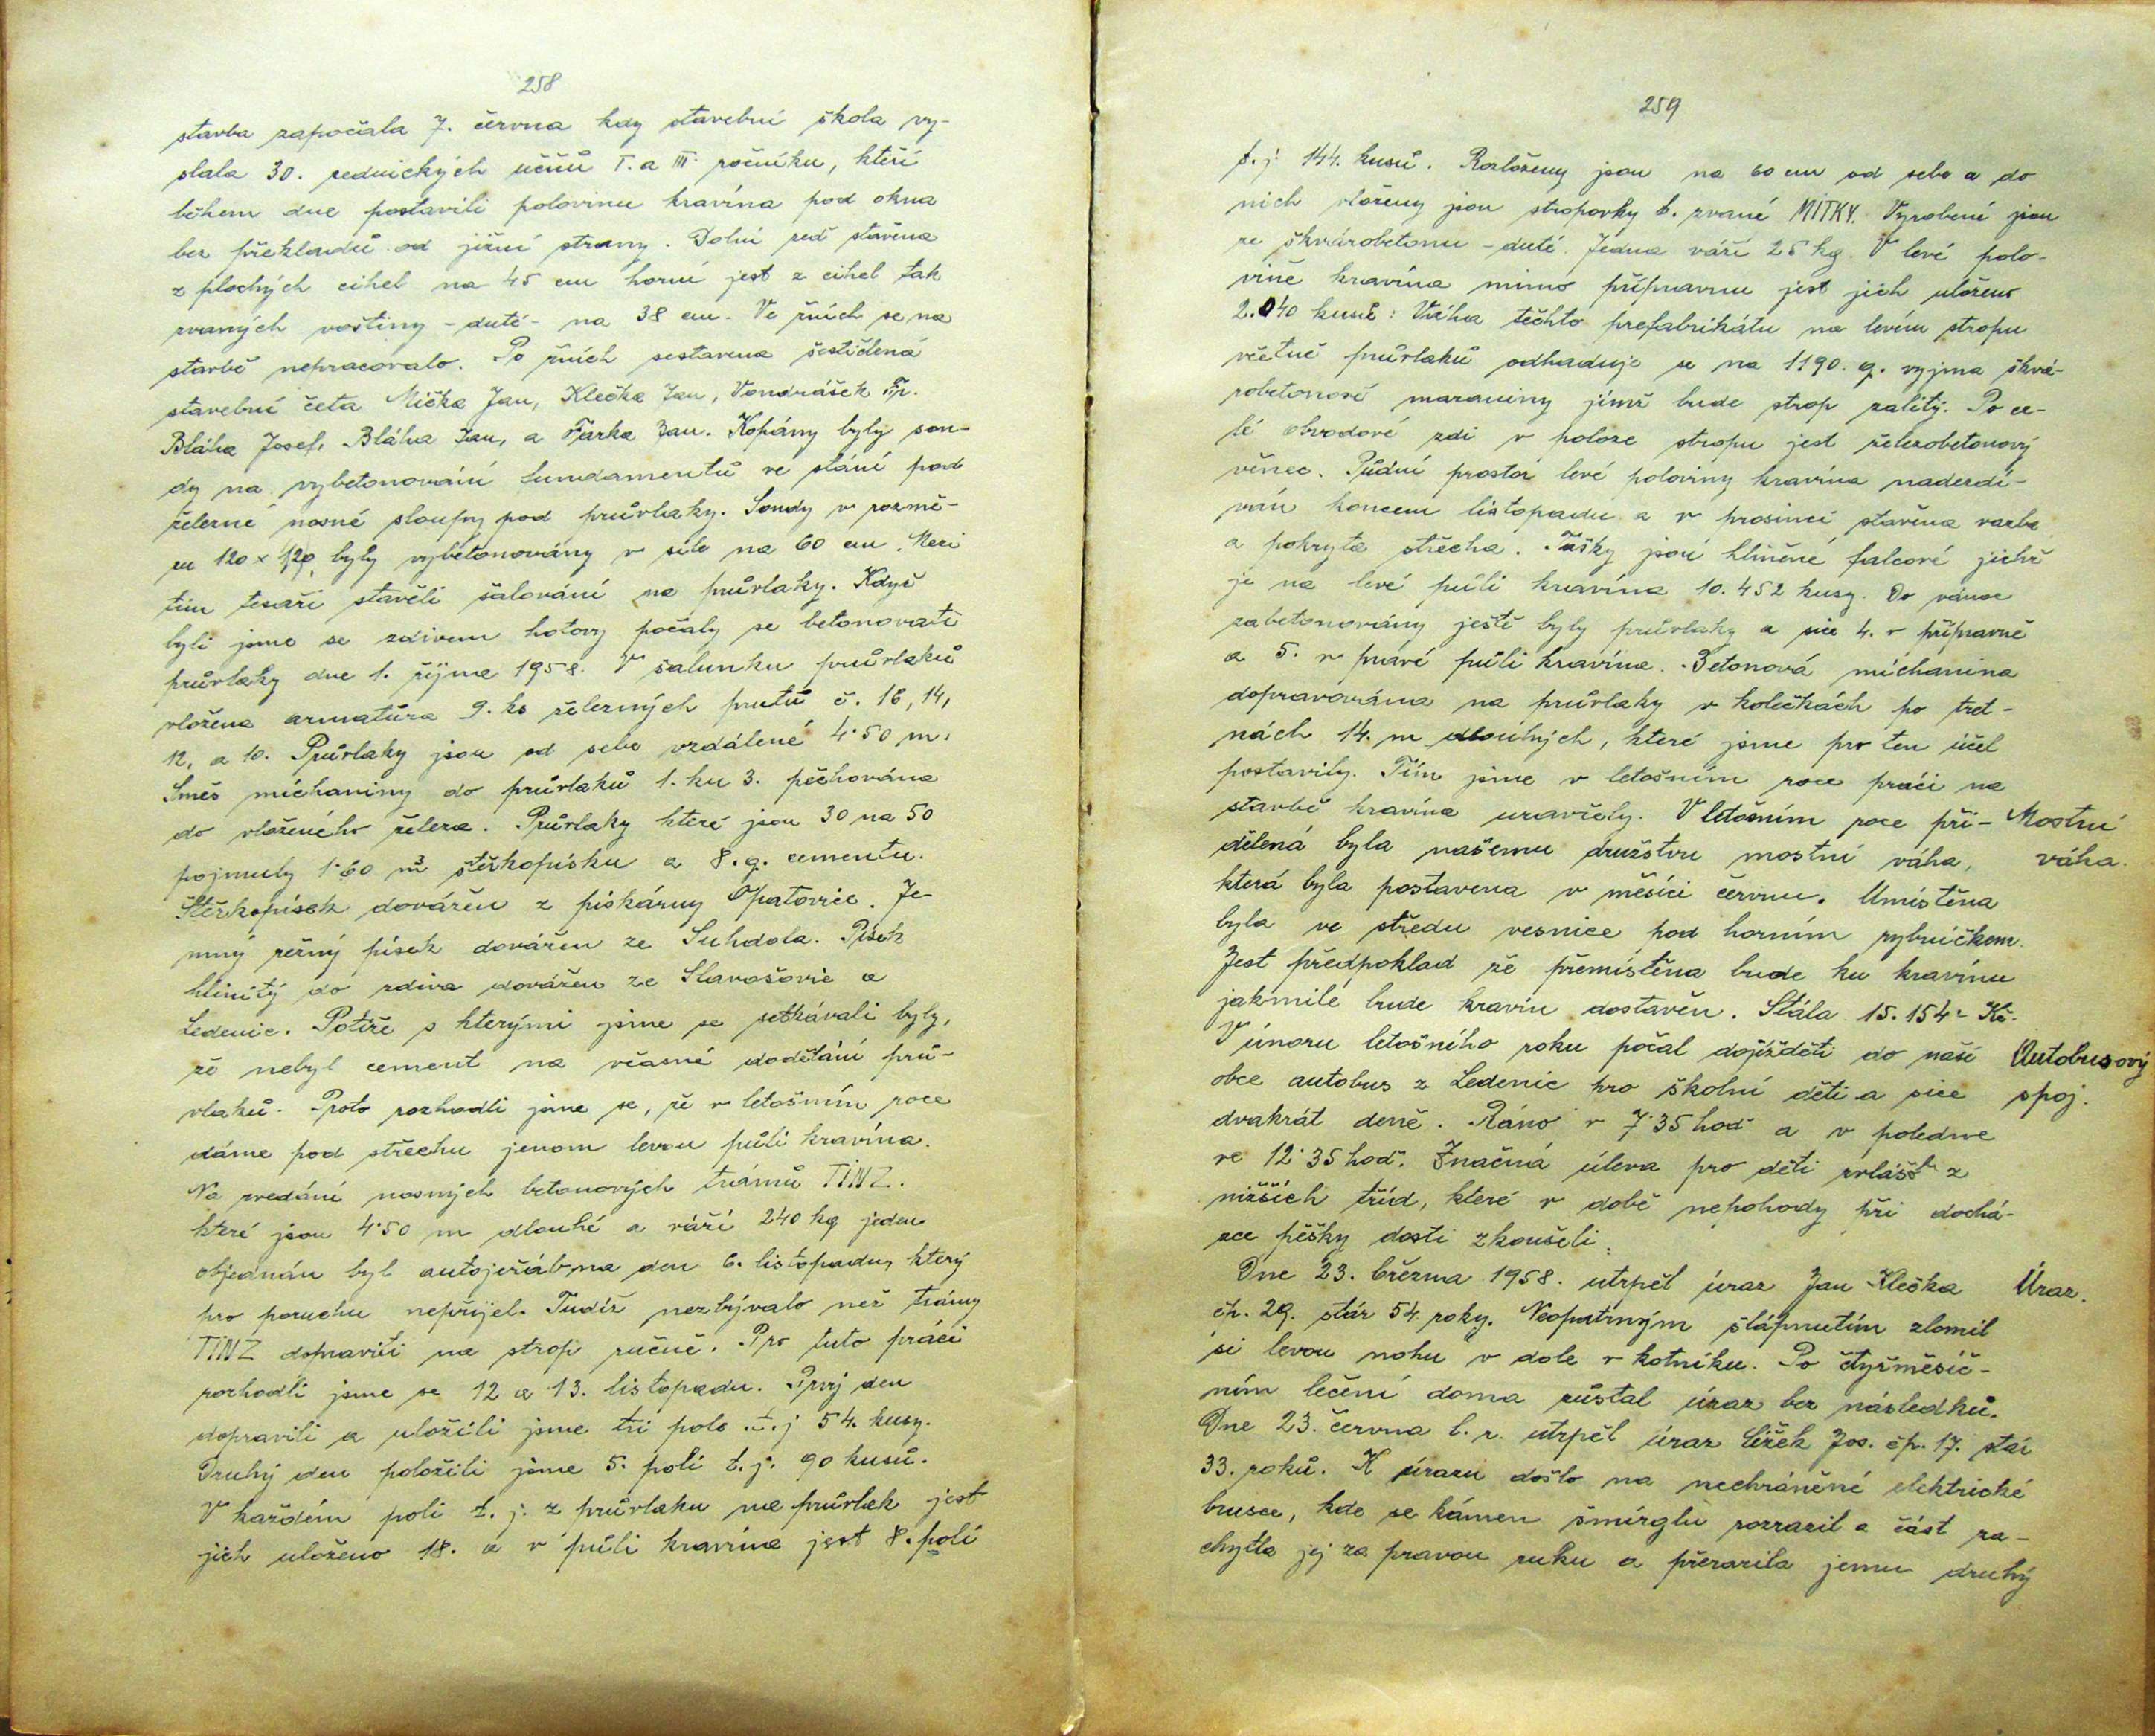 258
stavba započala 7. června kdy stavební škola vy-
slala 30. zednických učňů I. a III. ročníku, kteří
během dne postavili polovinu kravína pod okna
bez překladů od jižní strany. Dolní zeď stavěna
z plochých cihel na 45 cm horní jest z cihel tak
zvaných voštiny - duté - na 38 cm. Ve žních se na
stavbě nepracovalo. Po žních sestavena šestičlená
stavební četa Mička Jan, Klečka Jan, Vondrášek Fr.
Bláha Josef, Bláha Jan, a Farka Jan. Kopány byly son-
dy na vybetonování fundamentů ve stání pod
železné nosné sloupy pod průvlaky. Sondy v rozmě-
ru 120 x 120 byly vybetonovány v síle na 60 cm. Mezi
tím tesaři stavěli šalování na průvlaky. Když
byli jsme se zdivem hotovy počaly se betonovati
průvlaky dne 1. října 1958. V šalunku průvlaků
vložena armatůra 9. ks železných prutů č. 16, 14,
12, a 10. Průvlaky jsou od sebe vzdálené 4·50 m.
Směs míchaniny do průvlaků 1. ku 3. pěchována
do vloženého železa. Průvlaky které jsou 30 na 50
pojmuly 1·60 m³ štěrkopísku a 8. q. cementu.
Štěrkopísek dovážen z pískárny Opatovice. Je-
mný režný písek dovážen ze Suhdola. Písek
hlinitý do zdiva dovážen ze Slavošovic a
Ledenic. Potíže s kterými jsme se setkávali byly,
že nebyl cement na včasné dodělání prů-
vlaků. Proto rozhodli jsme se, že v letošním roce
dáme pod střechu jenom levou půli kravína.
Na zvedání nosných betonových trámů TINZ.
které jsou 4·50 m dlouhé a váží 240 kg jeden
objednán byl autojeřáb na den 6. listopadu, který
pro poruchu nepřijel. Tudíž nezbývalo než trámy
TINZ dopraviti na strop ručně. Pro tuto práci
rozhodli jsme se 12 a 13. listopadu. Prvý den
dopravili a uložili jsme tři pole t. j 54. kusy.
Druhý den položili jsme 5. polí t. j. 90 kusů.
V každém poli t. j. z průvlaku na průvlak jest
jich uloženo 18. a v půli kravína jest 8. polí
259
t. j. 144. kusů. Rozloženy jsou na 60 cm od sebe a do
nich vloženy jsou stropovky t. zvané MITKY. Vyrobené jsou
ze škvárobetonu - duté. Jedna váží 25 kg. V levé polo-
vině kravína mimo přípravnu jest jich uloženo
2.040 kusů: Váha těchto prefabrikátu na levém stropu
včetně průvlaků odhaduje se na 1190. q. vyjma škvá-
robetonové mazaniny jímž bude strop zalitý. Po ce-
lé obvodové zdi v poloze stropu jest železobetonový
věnec. Půdní prostor levé poloviny kravína nadezdí-
ván koncem listopadu a v prosinci stavěna vazba
a pokryta střecha. Tašky jsou hliněné falcové jichž
je na levé půli kravína 10.452 kusy. Do vánoc
zabetonovány ještě byly průvlaky a sice 4. v přípravně
a 5. v pravé půli kravína. Betonová míchanina
dopravována na průvlaky v kolečkách po tret-
nách 14. m dlouhých, které jsme pro ten účel
postavily. Tím jsme v letošním roce práci na
stavbě kravína uzavřely. V letošním roce při-
dělená byla našemu družstvu mostní váha,
Mostní
váha.
která byla postavena v měsíci červnu. Umístěna
byla ve středu vesnice pod horním rybníčkem.
Jest předpoklad že přemístěna bude ku kravínu
jakmile bude kravín dostavěn. Stála 15.154 - Kč.
V únoru letošního roku počal dojížděti do naší
obce autobus z Ledenic pro školní děti a sice
Autobusový
spoj.
dvakrát deně. Ráno v 7·35 hod a v poledne
ve 12·35 hod. Značná úleva pro děti zvlášť z
nižších tříd, které v době nepohody při dochá-
zce pěšky dosti zkoušeli.
Dne 23. března 1958. utrpěl úraz Jan Klečka
Úraz.
čp. 29. stár 54 roky. Neopatrným šlápnutím zlomil
si levou nohu v dole v kotníku. Po čtyřměsíč-
ním lečení doma zůstal úraz bez následků.
Dne 23. června t. r. utrpěl úraz Jos. čp. 17. stár
33. roků. K úrazu došlo na nechráněné elektrické
brusce, kde se kámen šmirglu rozrazil a část za-
chytla jej za pravou ruku a přerazila jemu druhý